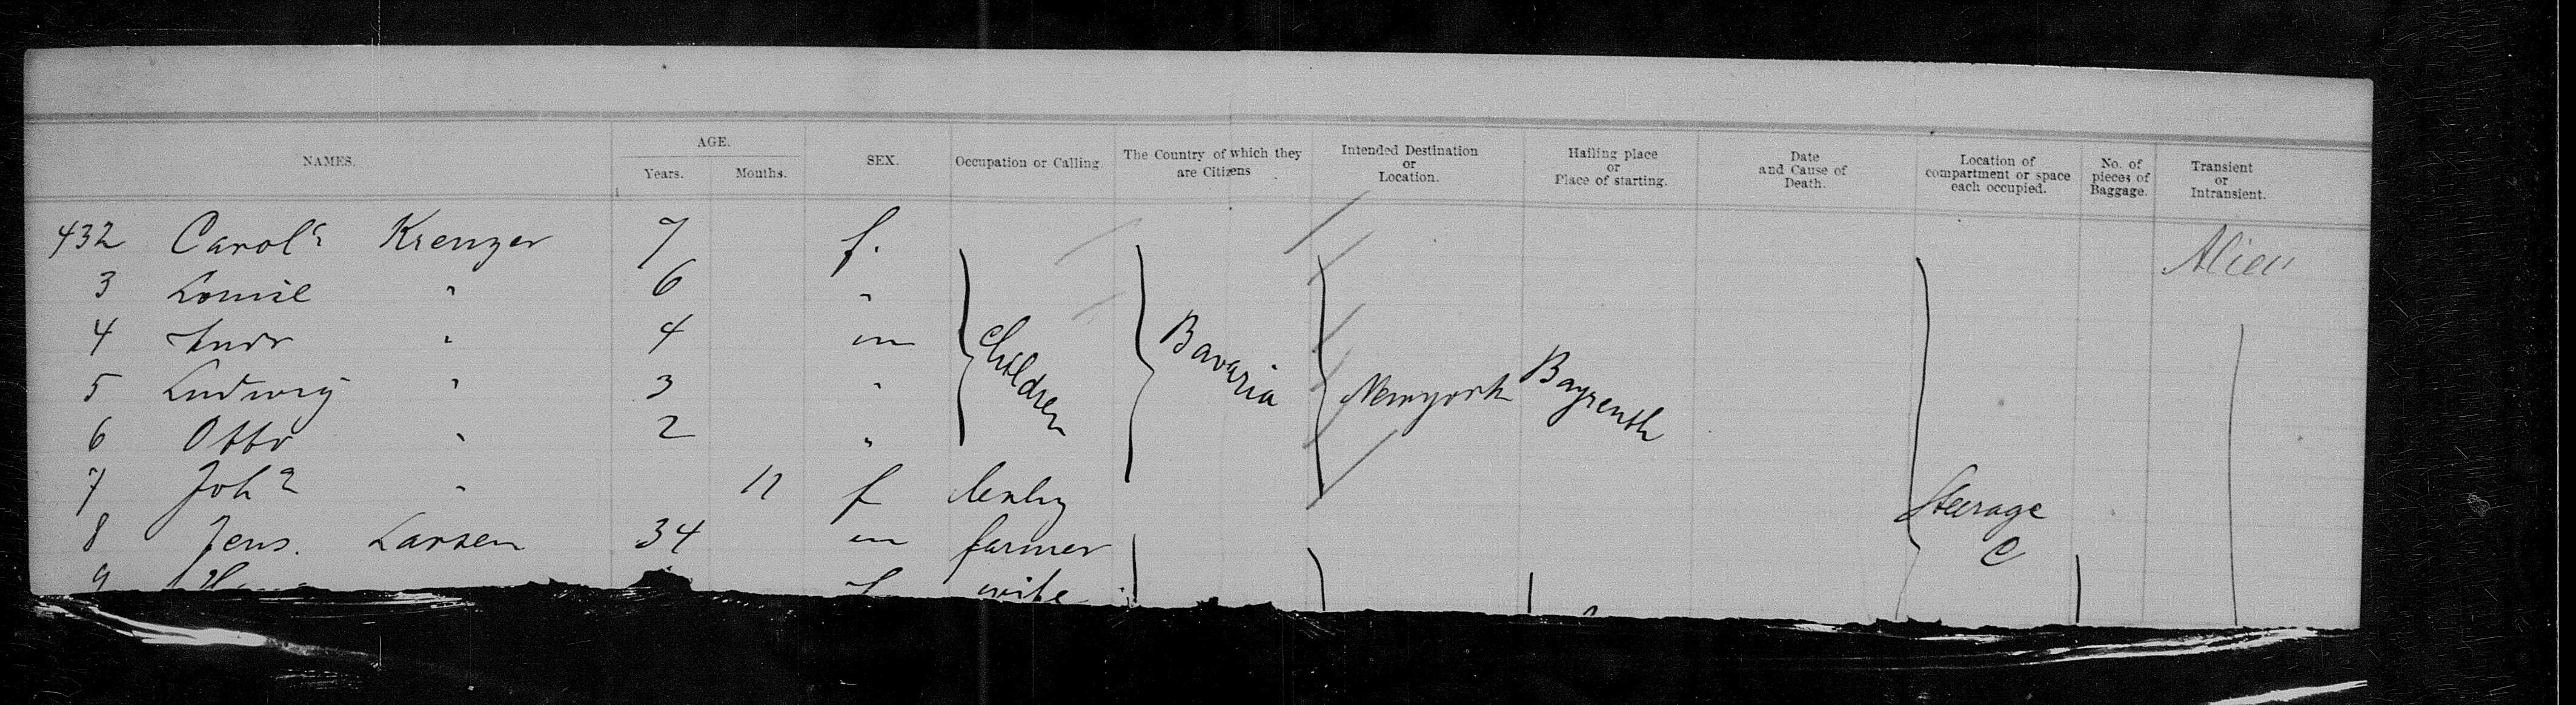 NAMES. AGE. Years. Months. SEX. Occupation or Calling. The Country of which they are Citizens Intended Destination or Location. Hailing place or Place of starting. Date and Cause of Death. Location of compartment or space each occupied. No. of pieces of Baggage. Transient or Intransient.
432 Carol Krenzer 7 f. Alien
3 Louise " 6 "
4 Andr " 4 m Children Bavaria
5 Ludwig " 3 " Newyork Bayreuth
6 Otto " 2 "
7 Joh " 11 f
8 Jens. Larsen 34 m farmer Steerage C
9 f wife